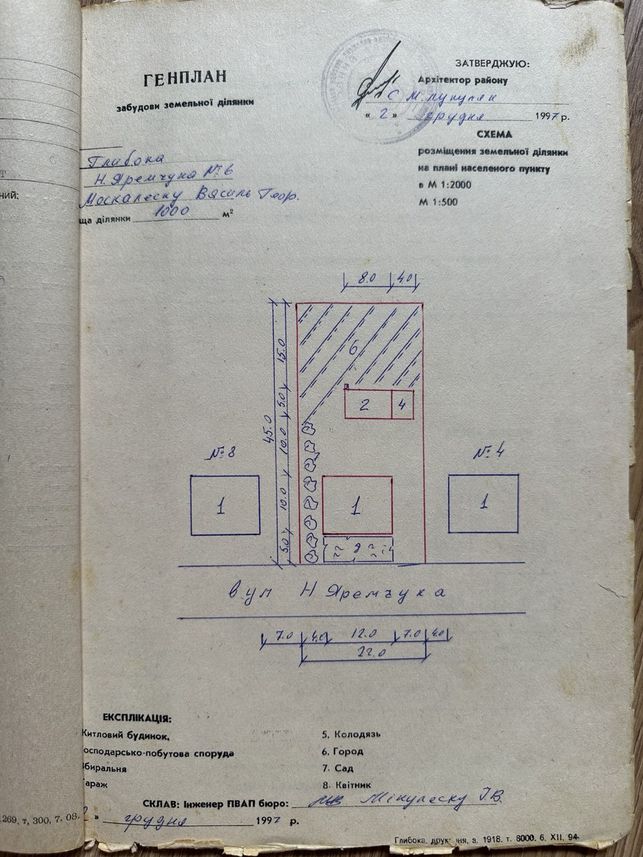 ГЕНПЛАН
забудови земельної ділянки
ЗАТВЕРДЖУЮ:
Архітектор району
« 2 » грудня 1997 р.
СХЕМА
розміщення земельної ділянки
на плані населеного пункту
в М 1:2000
М 1:500
Глибока
Н. Яремчука № 6
Москалеску Василь Геор.
ща ділянки 1000 м²
ний:
8.0 4.0
15.0
5.0
10.0
10.0
5.0
45.0
6
2 4
№ 8
№ 4
1
1
1
вул Н Яремчука
7.0 4.0 12.0 7.0 4.0
22.0
ЕКСПЛІКАЦІЯ:
Житловий будинок,
осподарсько-побутова споруда
биральня
араж
5. Колодязь
6. Город
7. Сад
8. Квітник
СКЛАВ: Інженер ПВАП бюро: Мікулеску І.В.
» грудня 1997 р.
269, т, 300, 7. 08.
Глибока, друк. ня, з. 1918. т. 8000. 6. XII. 94